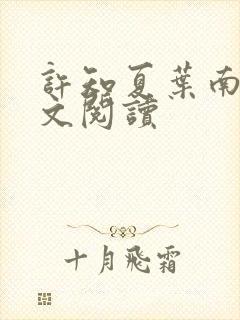 許知夏葉南
文閱讀
十月飛霜